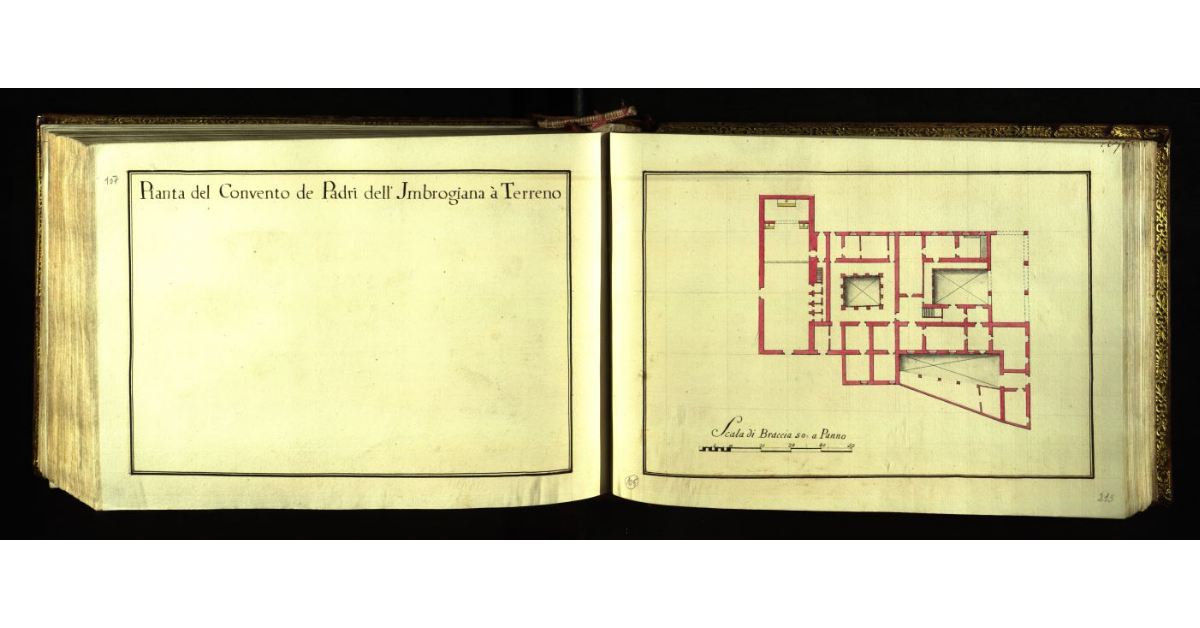 107
Pianta del Convento de Padri dell' Jmbrogiana à Terreno
Scala di Braccia 50: a Panno
10 20 30 40 50
213